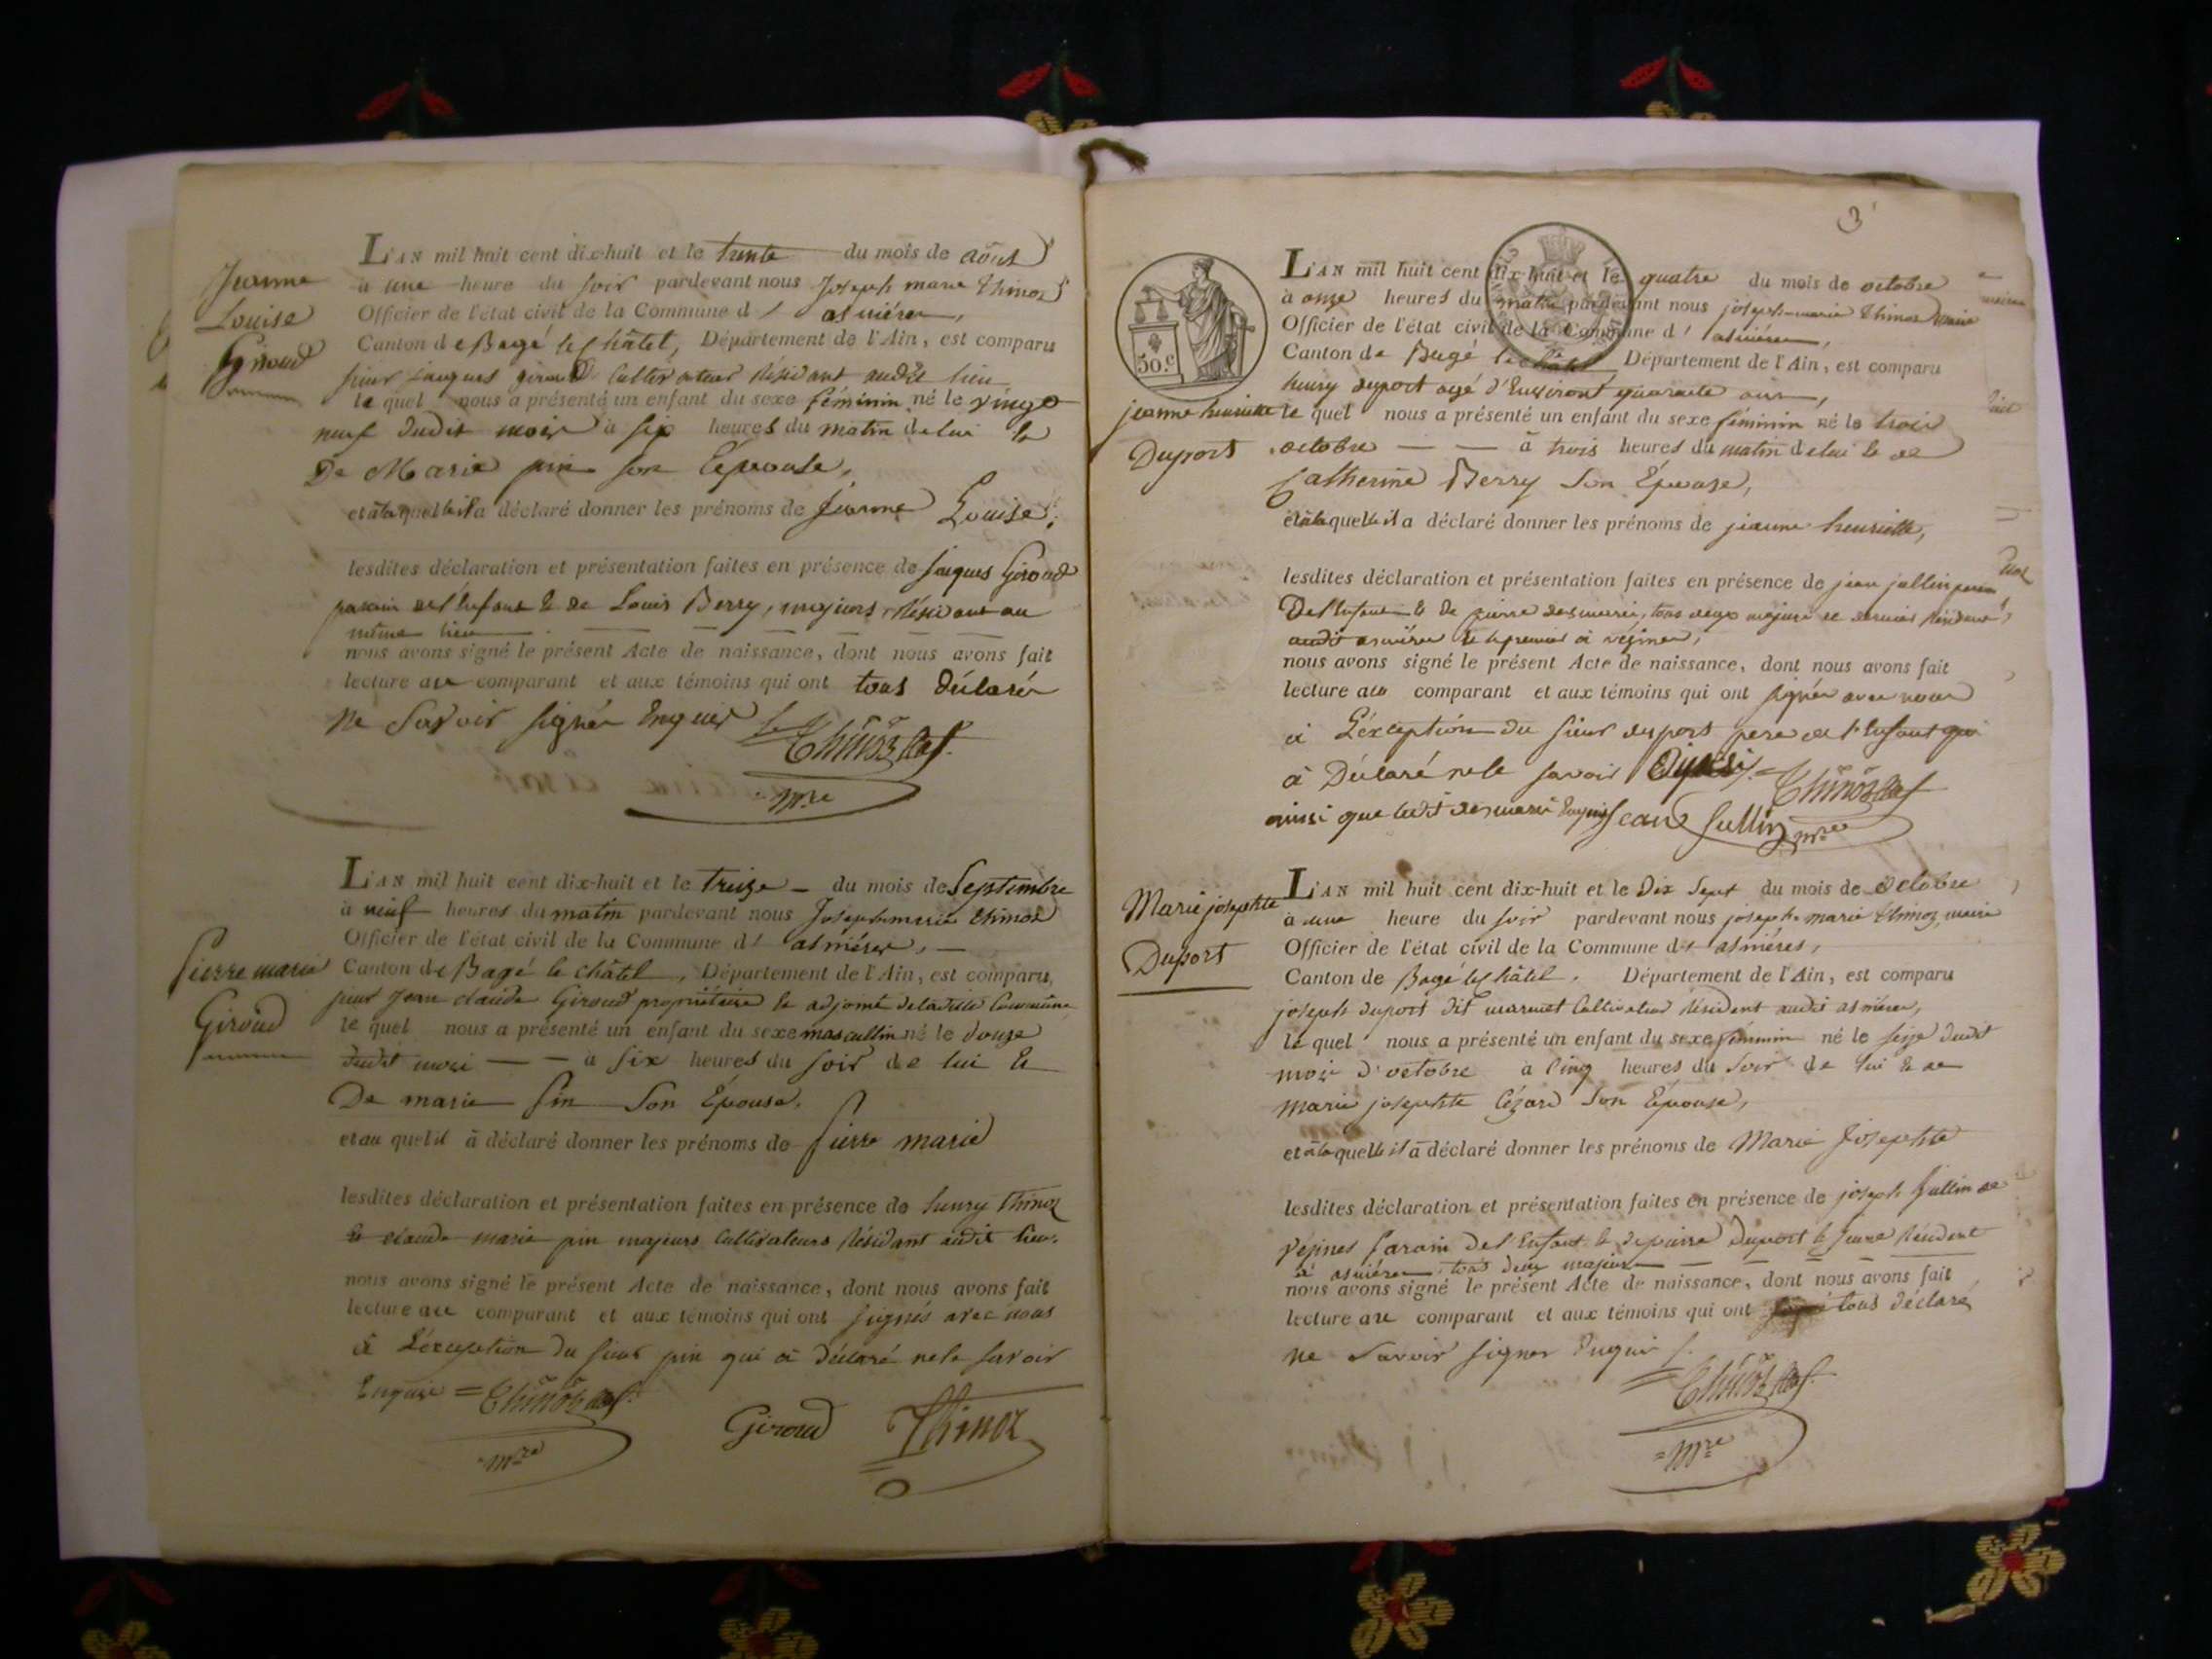 Jeanne
Louise
Giroud
L'AN mil huit cent dix-huit et le trente du mois de août
à une heure du soir pardevant nous Joseph marie thinoz
Officier de l'état civil de la Commune d' asnières,
Canton de Bagé le Châtel, Département de l'Ain, est comparu
sieur jacques giroud Cultivateur Résidant audit lieu
le quel nous a présenté un enfant du sexe féminin né le vingt
neuf dudit mois à six heures du matin de lui &
De Marie pin son Épouse,
et à la quelle il a déclaré donner les prénoms de Jeanne Louise,
lesdites déclaration et présentation faites en présence de jacques Giroud
parain de l'enfant & de Louis Berry, majeurs Résidant au
même lieu
nous avons signé le présent Acte de naissance, dont nous avons fait
lecture au comparant et aux témoins qui ont tous Déclaré
ne Savoir signer Enquis
Thinoz
mre
Pierre marie
Giroud
L'AN mil huit cent dix-huit et le treize du mois de Septembre
à neuf heures du matin pardevant nous Joseph marie thinoz
Officier de l'état civil de la Commune d' asnières,
Canton de Bagé le châtel, Département de l'Ain, est comparu,
sieur Jean claude Giroud propriétaire & adjoint de ladite Commune
le quel nous a présenté un enfant du sexe mascullin né le douze
dudit mois à six heures du soir de lui &
De marie pin Son Épouse,
et au quel il à déclaré donner les prénoms de Pierre marie
lesdites déclaration et présentation faites en présence de henry thinoz
& claude marie pin majeurs Cultivateurs Résidant audit lieu.
nous avons signé le présent Acte de naissance, dont nous avons fait
lecture au comparant et aux témoins qui ont signés avec nous
à L'éxception du sieur pin qui à Déclaré ne le savoir
Enquis = Thinoz
mre
Giroud Thinoz
3
50.c
jeanne henriette
Duport
L'AN mil huit cent dix-huit et le quatre du mois de octobre
à onze heures du matin pardevant nous joseph-marie thinoz maire
Officier de l'état civil de la Commune d' asnières,
Canton de Bagé le châtel Département de l'Ain, est comparu
henry duport agé d'Environt quarante ans,
le quel nous a présenté un enfant du sexe féminin né le trois
octobre à trois heures du matin de lui & de
Catherine Berry Son Épouse,
et à la quelle il a déclaré donner les prénoms de jeanne henriette,
lesdites déclaration et présentation faites en présence de jean jullin parain
De l'Enfant & de pierre desmaris, tous deux majeurs ce dernier Résident
audit asnières & le premier à vésines,
nous avons signé le présent Acte de naissance, dont nous avons fait
lecture au comparant et aux témoins qui ont signés avec nous
à L'éxception du sieur duport pere de l'Enfant qui
à Déclaré ne le savoir
Thinoz
ainsi que ledit desmaris Enquis Jean Jullin mre
Marie josephte
Duport
L'AN mil huit cent dix-huit et le Dix Sept du mois de Octobre
à une heure du soir pardevant nous joseph marie thinoz, maire
Officier de l'état civil de la Commune d' asnières,
Canton de Bagé le Châtel. Département de l'Ain, est comparu
joseph duport dit marmet Cultivateur Résident audit asnières,
le quel nous a présenté un enfant du sexe féminin né le seize dudit
mois d'octobre à Cinq heures du Soir de lui & de
Marie josephte Cézard Son Épouse,
et à la quelle il à déclaré donner les prénoms de Marie Josephte
lesdites déclaration et présentation faites en présence de joseph jullin de
vésines Parain de l'Enfant & de pierre Duport le Jeune Résident
à asnières, tous deux majeurs
nous avons signé le présent Acte de naissance, dont nous avons fait
lecture au comparant et aux témoins qui ont tous déclaré
ne Savoir signer Enquis
Thinoz
mre